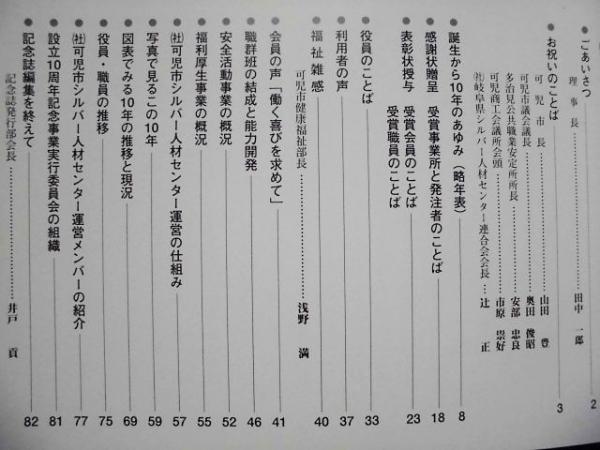 ● ごあいさつ 2
理事長 田中 一郎
● お祝いのことば 3
可児市長 山田 豊
可児市議会議長 奥田 俊昭
多治見公共職業安定所所長 安部 忠良
可児商工会議所会頭 市原 崇好
㈳岐阜県シルバー人材センター連合会会長 辻 正
● 誕生から10年のあゆみ（略年表） 8
● 感謝状贈呈 受賞事業所と発注者のことば 18
● 表彰状授与 受賞会員のことば 23
受賞職員のことば
● 役員のことば 33
● 利用者の声 37
● 福祉雑感 40
可児市健康福祉部長 浅野 満
● 会員の声「働く喜びを求めて」 41
● 職群班の結成と能力開発 46
● 安全活動事業の概況 52
● 福利厚生事業の概況 55
● ㈳可児市シルバー人材センター運営の仕組み 57
● 写真で見るこの10年 59
● 図表でみる10年の推移と現況 69
● 役員・職員の推移 75
● ㈳可児市シルバー人材センター運営メンバーの紹介 77
● 設立10周年記念事業実行委員会の組織 81
● 記念誌編集を終えて 82
記念誌発行部会長 井戸 貢